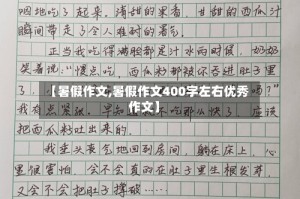 咽地吃了起来。清甜的果香,甘甜的西瓜汁
瞬间带走了令人难耐的暑气。
正当我吃得满脸都是汁水而时候,奶奶
笑着说:“慢点吃,西瓜籽都被你吞进肚子里
【暑假作文,暑假作文400字左右优秀
作文】
把西瓜籽吐出来的。
我垂头丧气地回到房间,躺在床上,心
里很害怕,会不会真的在肚子里生根发芽,
又会不会把肚子撑破……